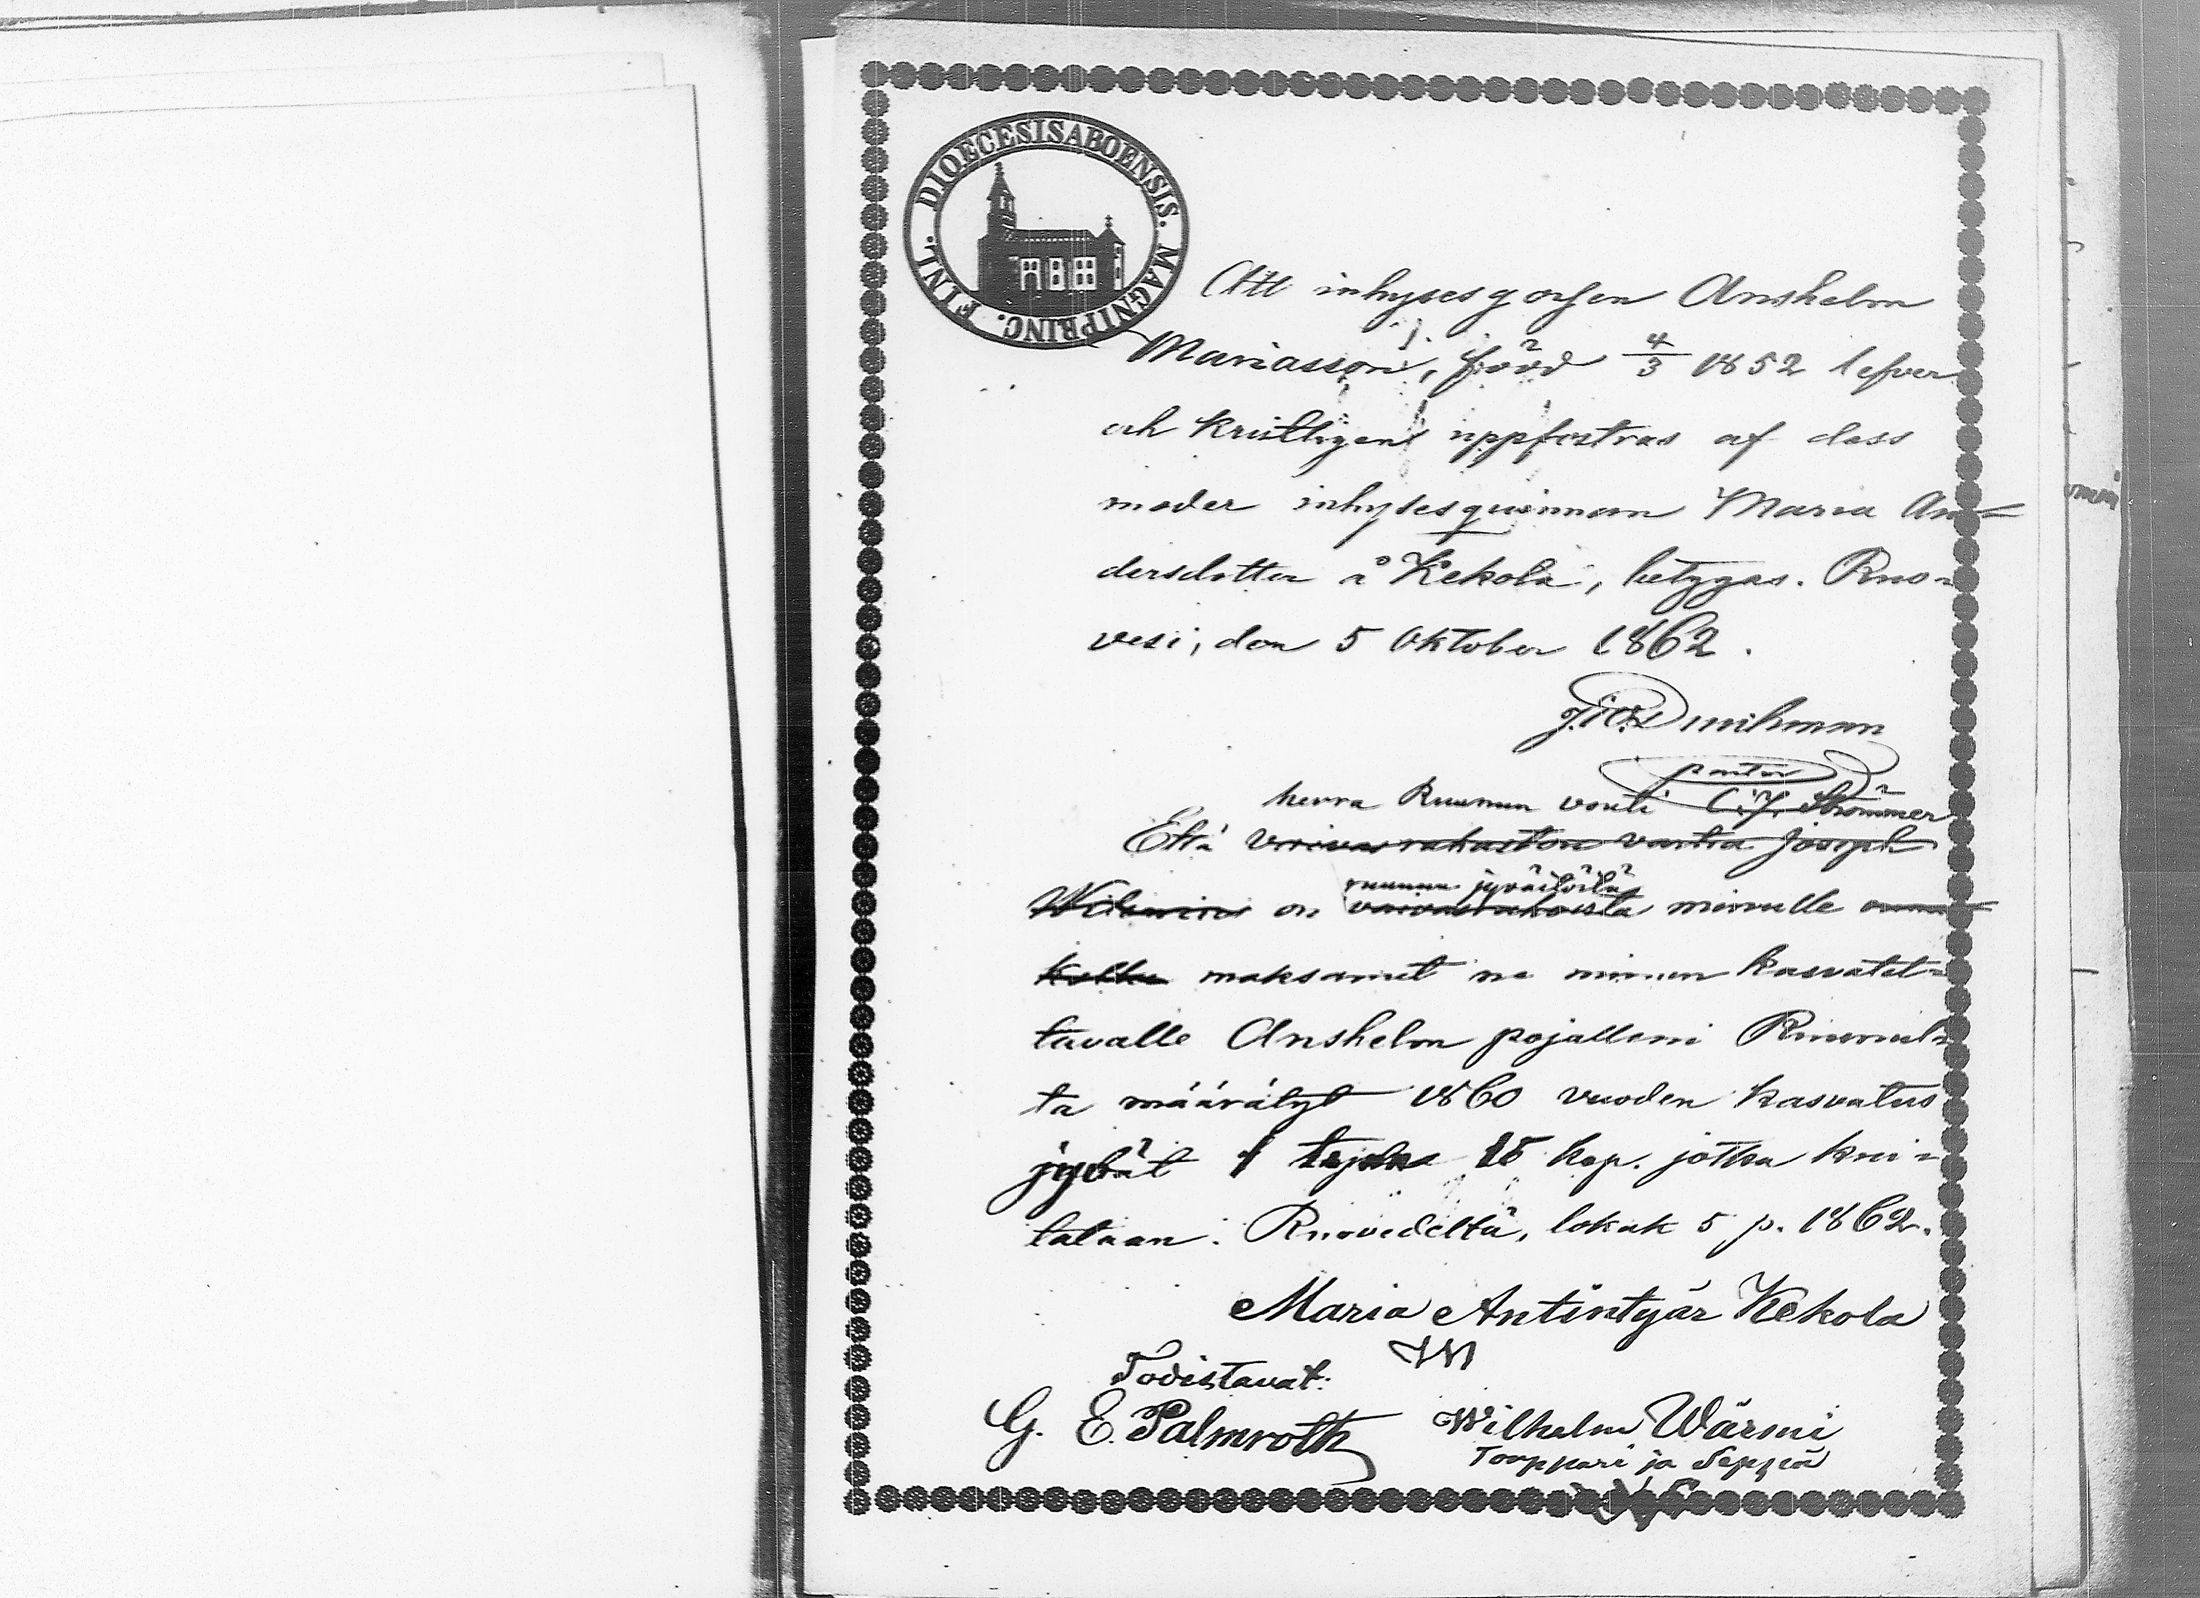 DIOECESIS ABOENSIS. MAGNI PRINC. FINL.
Att inhysesgossen Anshelm
Mariasson, född 4/3 1852 lefver
och kristligen uppfostras af dess
moder inhysesqvinnan Maria An=
dersdotter å Kekola, betygas. Ruo=
vesi, den 5 Oktober 1862.
Durchman
pastor
herra Ruunun vouti C. J. Strömmer
Että vaivasrahaston vartia Joseph
ruunun jyvästöstä
on vaivasrahasta minulle
maksanut ne minun kasvatet=
tavalle Anshelm pojalleni Ruunul=
ta määrätyt 1860 vuoden kasvatus
jyvät 1 15 kap. jotka kui=
tataan. Ruovedeltä, lokak 5 p. 1862.
Maria Antintyär Kekola
Todistavat:
G. E. Palmroth Wilhelm Wärmi
Torppari ja Seppä